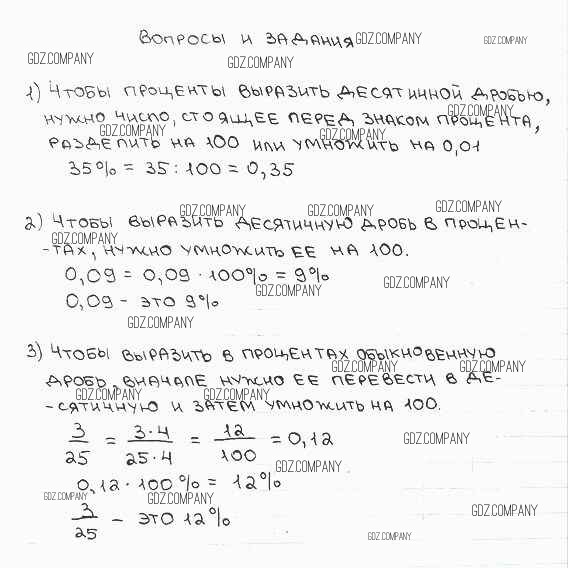 Вопросы и задания GDZ.COMPANY GDZ.COMPANY
GDZ.COMPANY GDZ.COMPANY
1) Чтобы проценты выразить десятичной дробью,
GDZ.COMPANY
нужно число, стоящее перед знаком процента,
GDZ.COMPANY GDZ.COMPANY
разделить на 100 или умножить на 0,01
35% = 35 : 100 = 0,35
GDZ.COMPANY GDZ.COMPANY GDZ.COMPANY
2) Чтобы выразить десятичную дробь в процен-
GDZ.COMPANY
-тах, нужно умножить ее на 100.
0,09 = 0,09 · 100% = 9% GDZ.COMPANY
GDZ.COMPANY
0,09 - это 9%
GDZ.COMPANY
3) Чтобы выразить в процентах обыкновенную
GDZ.COMPANY GDZ.COMPANY
дробь, вначале нужно ее перевести в де-
GDZ.COMPANY GDZ.COMPANY
-сятичную и затем умножить на 100.
3/25 = 3·4/25·4 = 12/100 = 0,12 GDZ.COMPANY
GDZ.COMPANY
0,12 · 100% = 12%
GDZ.COMPANY GDZ.COMPANY
3/25 - это 12% GDZ.COMPANY
GDZ.COMPANY